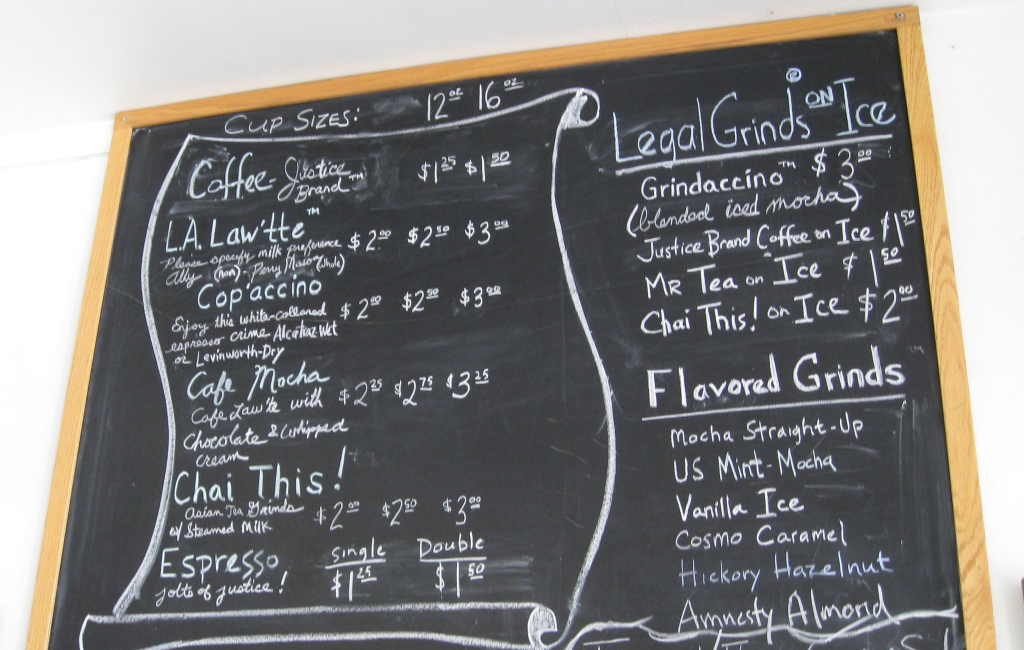 CUP SIZES: 12oz 16oz
Coffee - Justice Brand™ $1.25 $1.50
L.A. Law'tte™ $2.00 $2.50 $3.00
Please specify milk preference
Ally (non) - Perry Mason (whole)
Cop'accino $2.00 $2.50 $3.00
Enjoy this white-collared
espresso crime Alcatraz Wet
or Levinworth-Dry
Cafe Mocha $2.25 $2.75 $3.25
Cafe Law'te with
Chocolate & Whipped
cream
Chai This! $2.00 $2.50 $3.00
Asian Tea Grinds
w/ Steamed Milk
Espresso single Double
jolts of justice! $1.25 $1.50
Legal Grinds® ON Ice
Grindaccino™ $3.00
(blended iced mocha)
Justice Brand Coffee on Ice $1.50
MR Tea on Ice $1.50
Chai This! on Ice $2.00
Flavored Grinds™
Mocha Straight-Up
US Mint-Mocha
Vanilla Ice
Cosmo Caramel
Hickory Hazelnut
Amnesty Almond